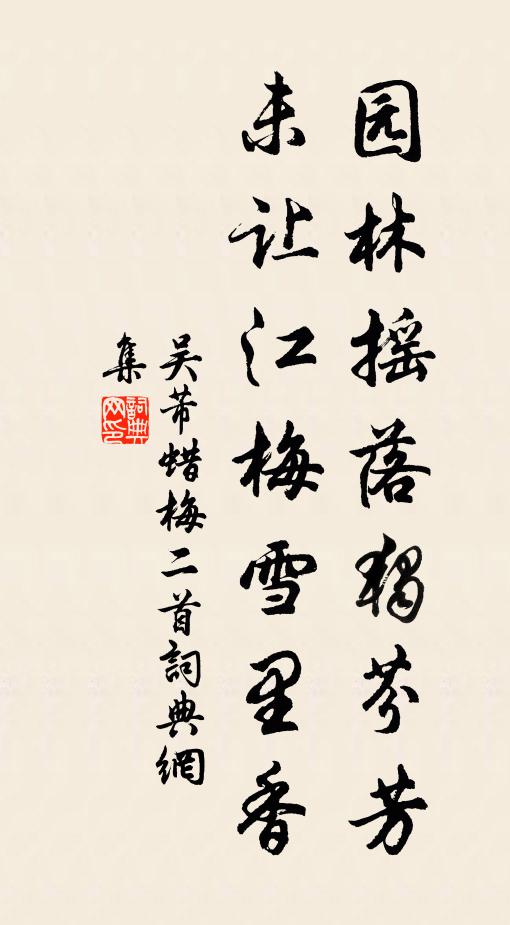 园林摇落独芬芳
未让江梅雪里香
吴芾蜡梅二首詞典網
集
詞典网印